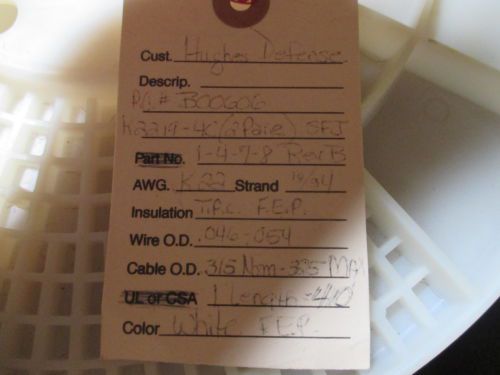 Cust. Hughes Defense
Descrip.
P/# B00606
K2219-4C (2 Pair) SFJ
Part No. 1-4-7-8 Rev B
AWG. K22 Strand 19/34
Insulation T.P.C. F.E.P.
Wire O.D. .046-.054
Cable O.D. 315 Nom-335 MAX
UL or CSA 1 Length
Color White F.E.P.